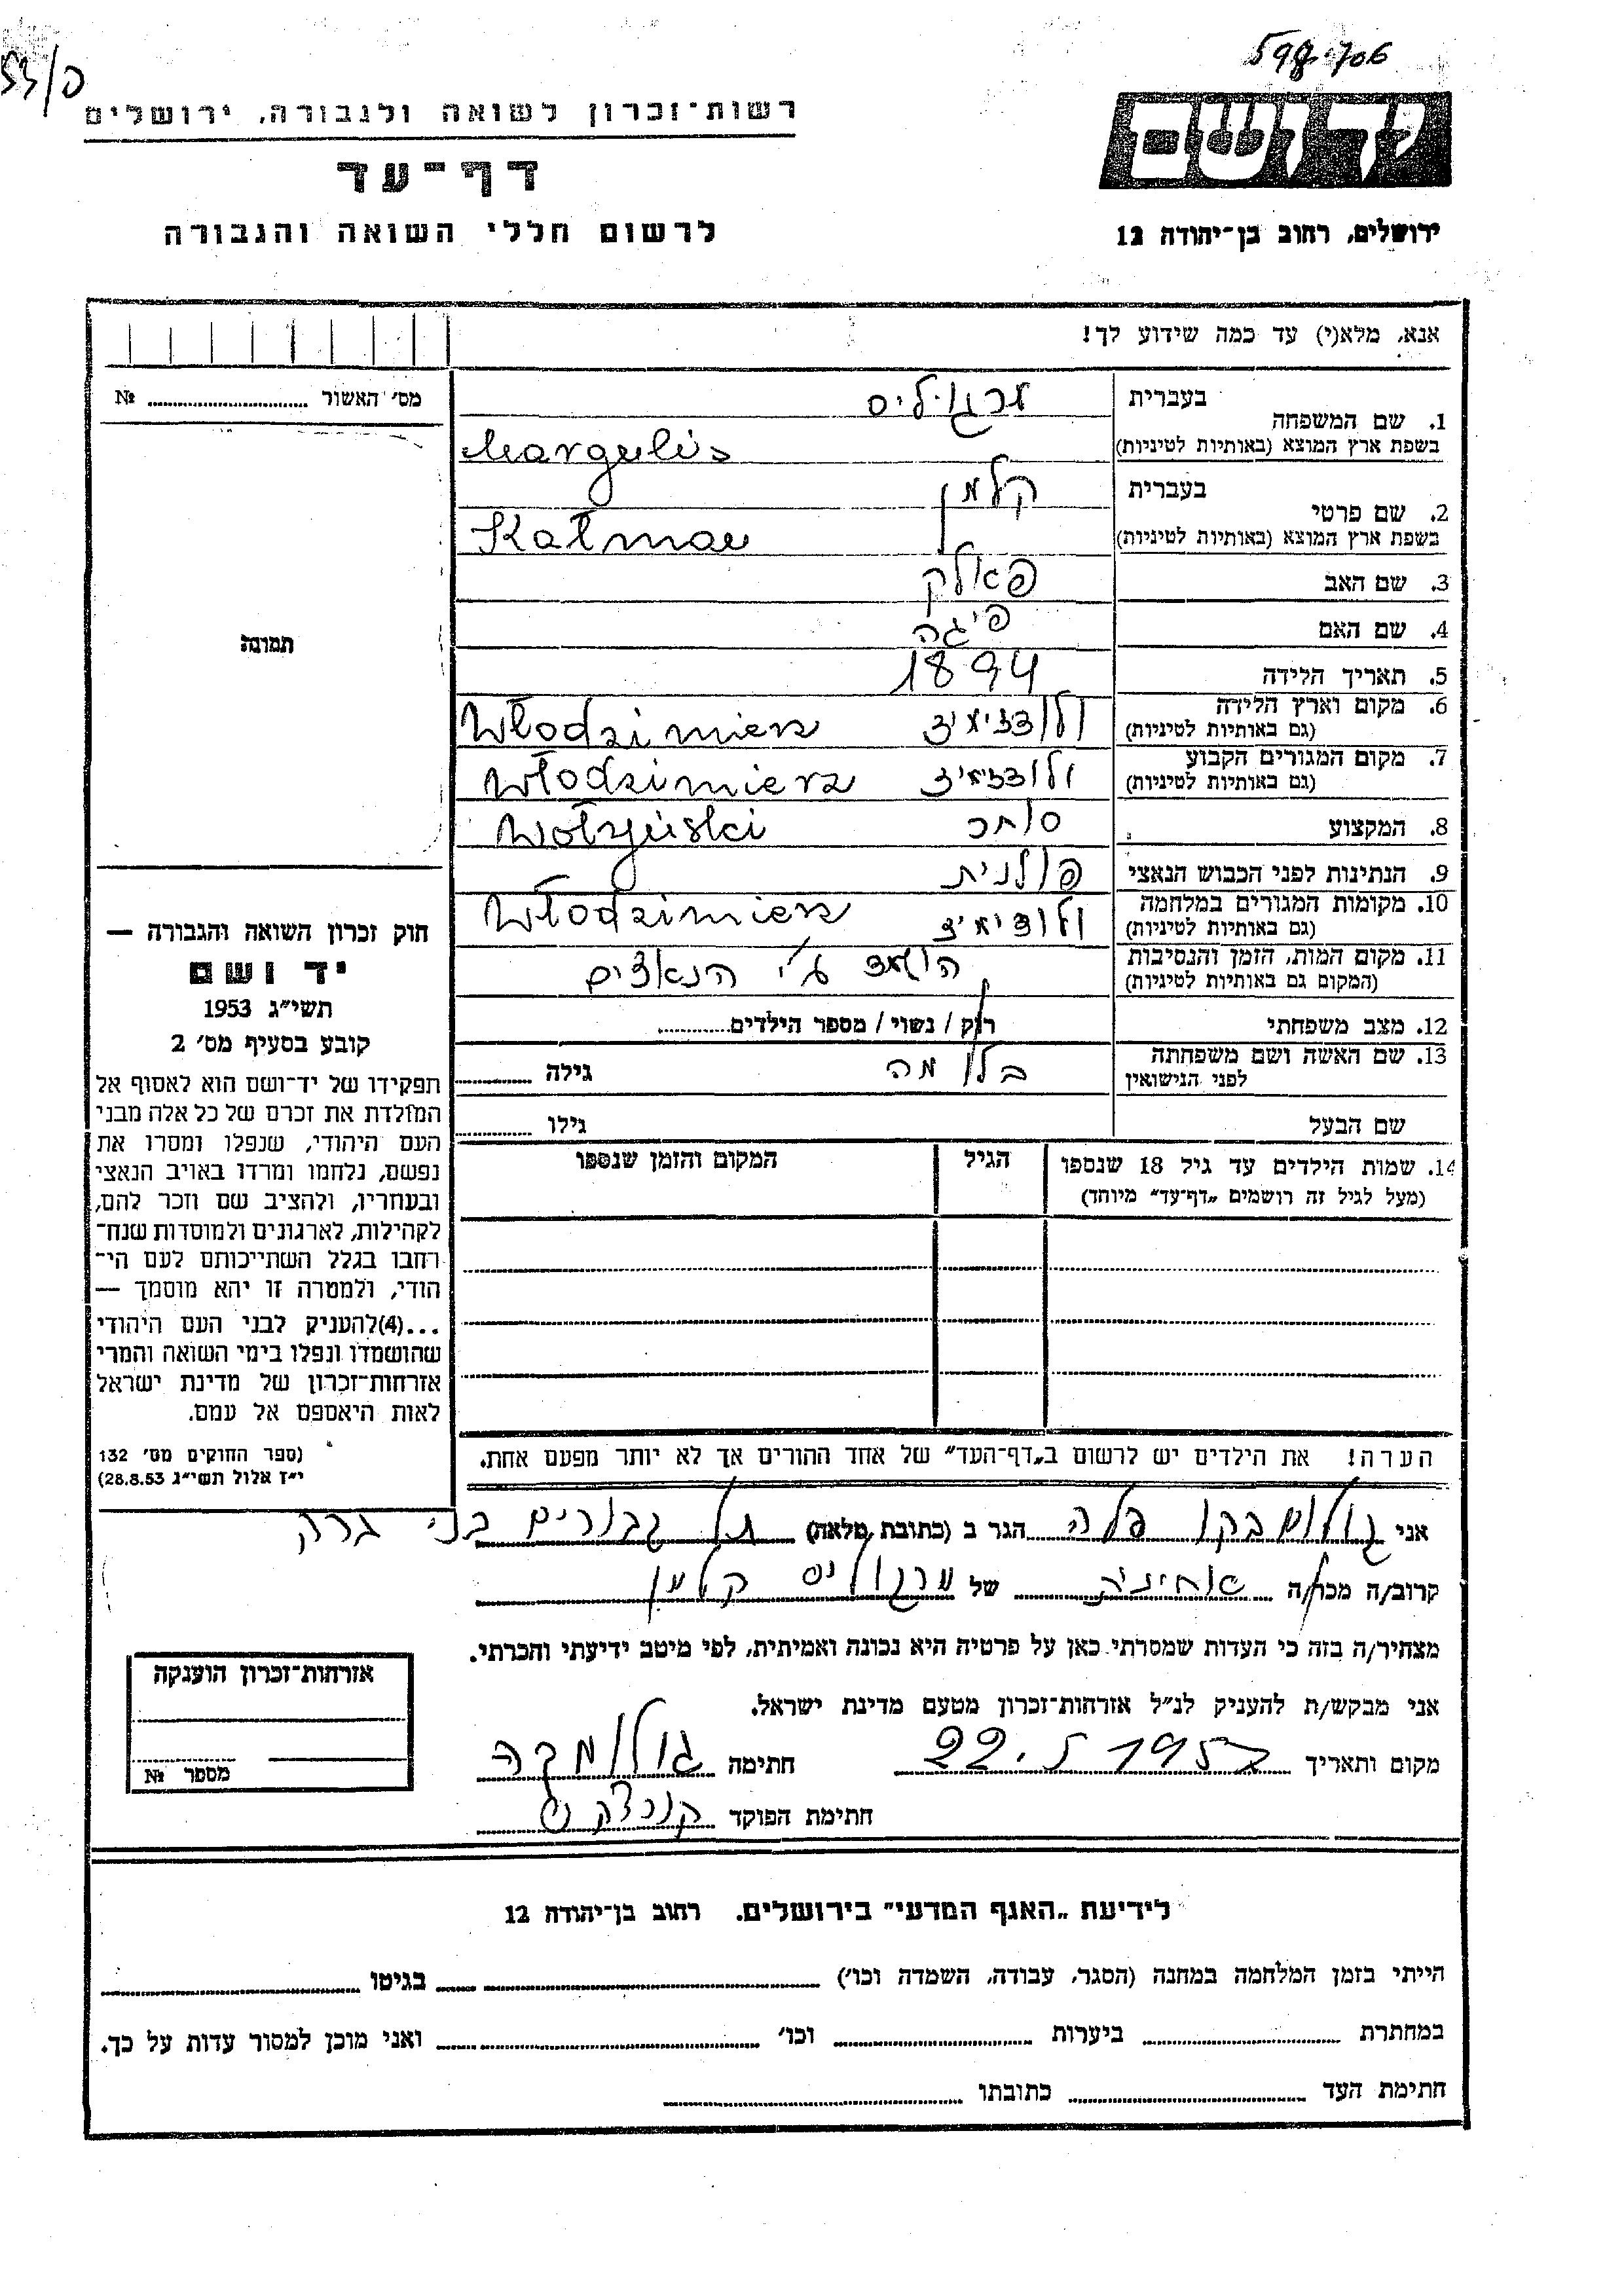 598706
רשות-זכרון לשואה ולגבורה, ירושלים
דף-עד
לרשום חללי השואה והגבורה
ירושלים, רחוב בן-יהודה 12
אנא, מלא(י) עד כמה שידוע לך!
מס׳ האשור № 
1. שם המשפחה
בעברית מרגוליס
בשפת ארץ המוצא (באותיות לטיניות) Margulis
2. שם פרטי
בעברית קלמן
בשפת ארץ המוצא (באותיות לטיניות) Kalman
3. שם האב
4. שם האם פיגה
5. תאריך הלידה 1894
6. מקום וארץ הלידה Włodzimierz
(גם באותיות לטיניות)
7. מקום המגורים הקבוע Włodzimierz
(גם באותיות לטיניות) Wołyński
8. המקצוע סוחר
9. הנתינות לפני הכבוש הנאצי פולנית
10. מקומות המגורים במלחמה Włodzimierz
(גם באותיות לטיניות)
11. מקום המות, הזמן והנסיבות ע״י הנאצים
(המקום גם באותיות לטיניות)
12. מצב משפחתי רוק / נשוי / מספר הילדים
13. שם האשה ושם משפחתה
לפני הנישואין גילה
שם הבעל גילו
14. שמות הילדים עד גיל 18 שנספו הגיל המקום והזמן שנספו
(מעל לגיל זה רושמים „דף-עד” מיוחד)
הערה! את הילדים יש לרשום ב„דף-העד” של אחד ההורים אך לא יותר מפעם אחת.
תמונה
חוק זכרון השואה והגבורה —
יד ושם
תשי״ג 1953
קובע בסעיף מס׳ 2
תפקידו של יד-ושם הוא לאסוף אל
המולדת את זכרם של כל אלה מבני
העם היהודי, שנפלו ומסרו את
נפשם, נלחמו ומרדו באויב הנאצי
ובעוזריו, ולהציב שם וזכר להם,
לקהילות, לארגונים ולמוסדות שנח-
רבו בגלל השתייכותם לעם הי-
הודי, ולמטרה זו יהא מוסמך —
...(4)להעניק לבני העם היהודי
שהושמדו ונפלו בימי השואה והמרי
אזרחות-זכרון של מדינת ישראל
לאות היאספם אל עמם.
(ספר החוקים מס׳ 132
י״ז אלול תשי״ג 28.8.53)
אני הגר ב (כתובת מלאה) תל גבורים בני ברק
קרוב/ה מכר/ה אחינית של מרגוליס קלמן
מצהיר/ה בזה כי העדות שמסרתי כאן על פרטיה היא נכונה ואמיתית, לפי מיטב ידיעתי והכרתי.
אני מבקש/ת להעניק לנ״ל אזרחות-זכרון מטעם מדינת ישראל.
מקום ותאריך 22.5 1957 חתימה
חתימת הפוקד
אזרחות-זכרון הוענקה
מספר №
לידיעת „האגף המדעי” בירושלים, רחוב בן-יהודה 12
הייתי בזמן המלחמה במחנה (הסגר, עבודה, השמדה וכו׳) בגיטו
במחתרת ביערות וכו׳ ואני מוכן למסור עדות על כך.
חתימת העד כתובתו